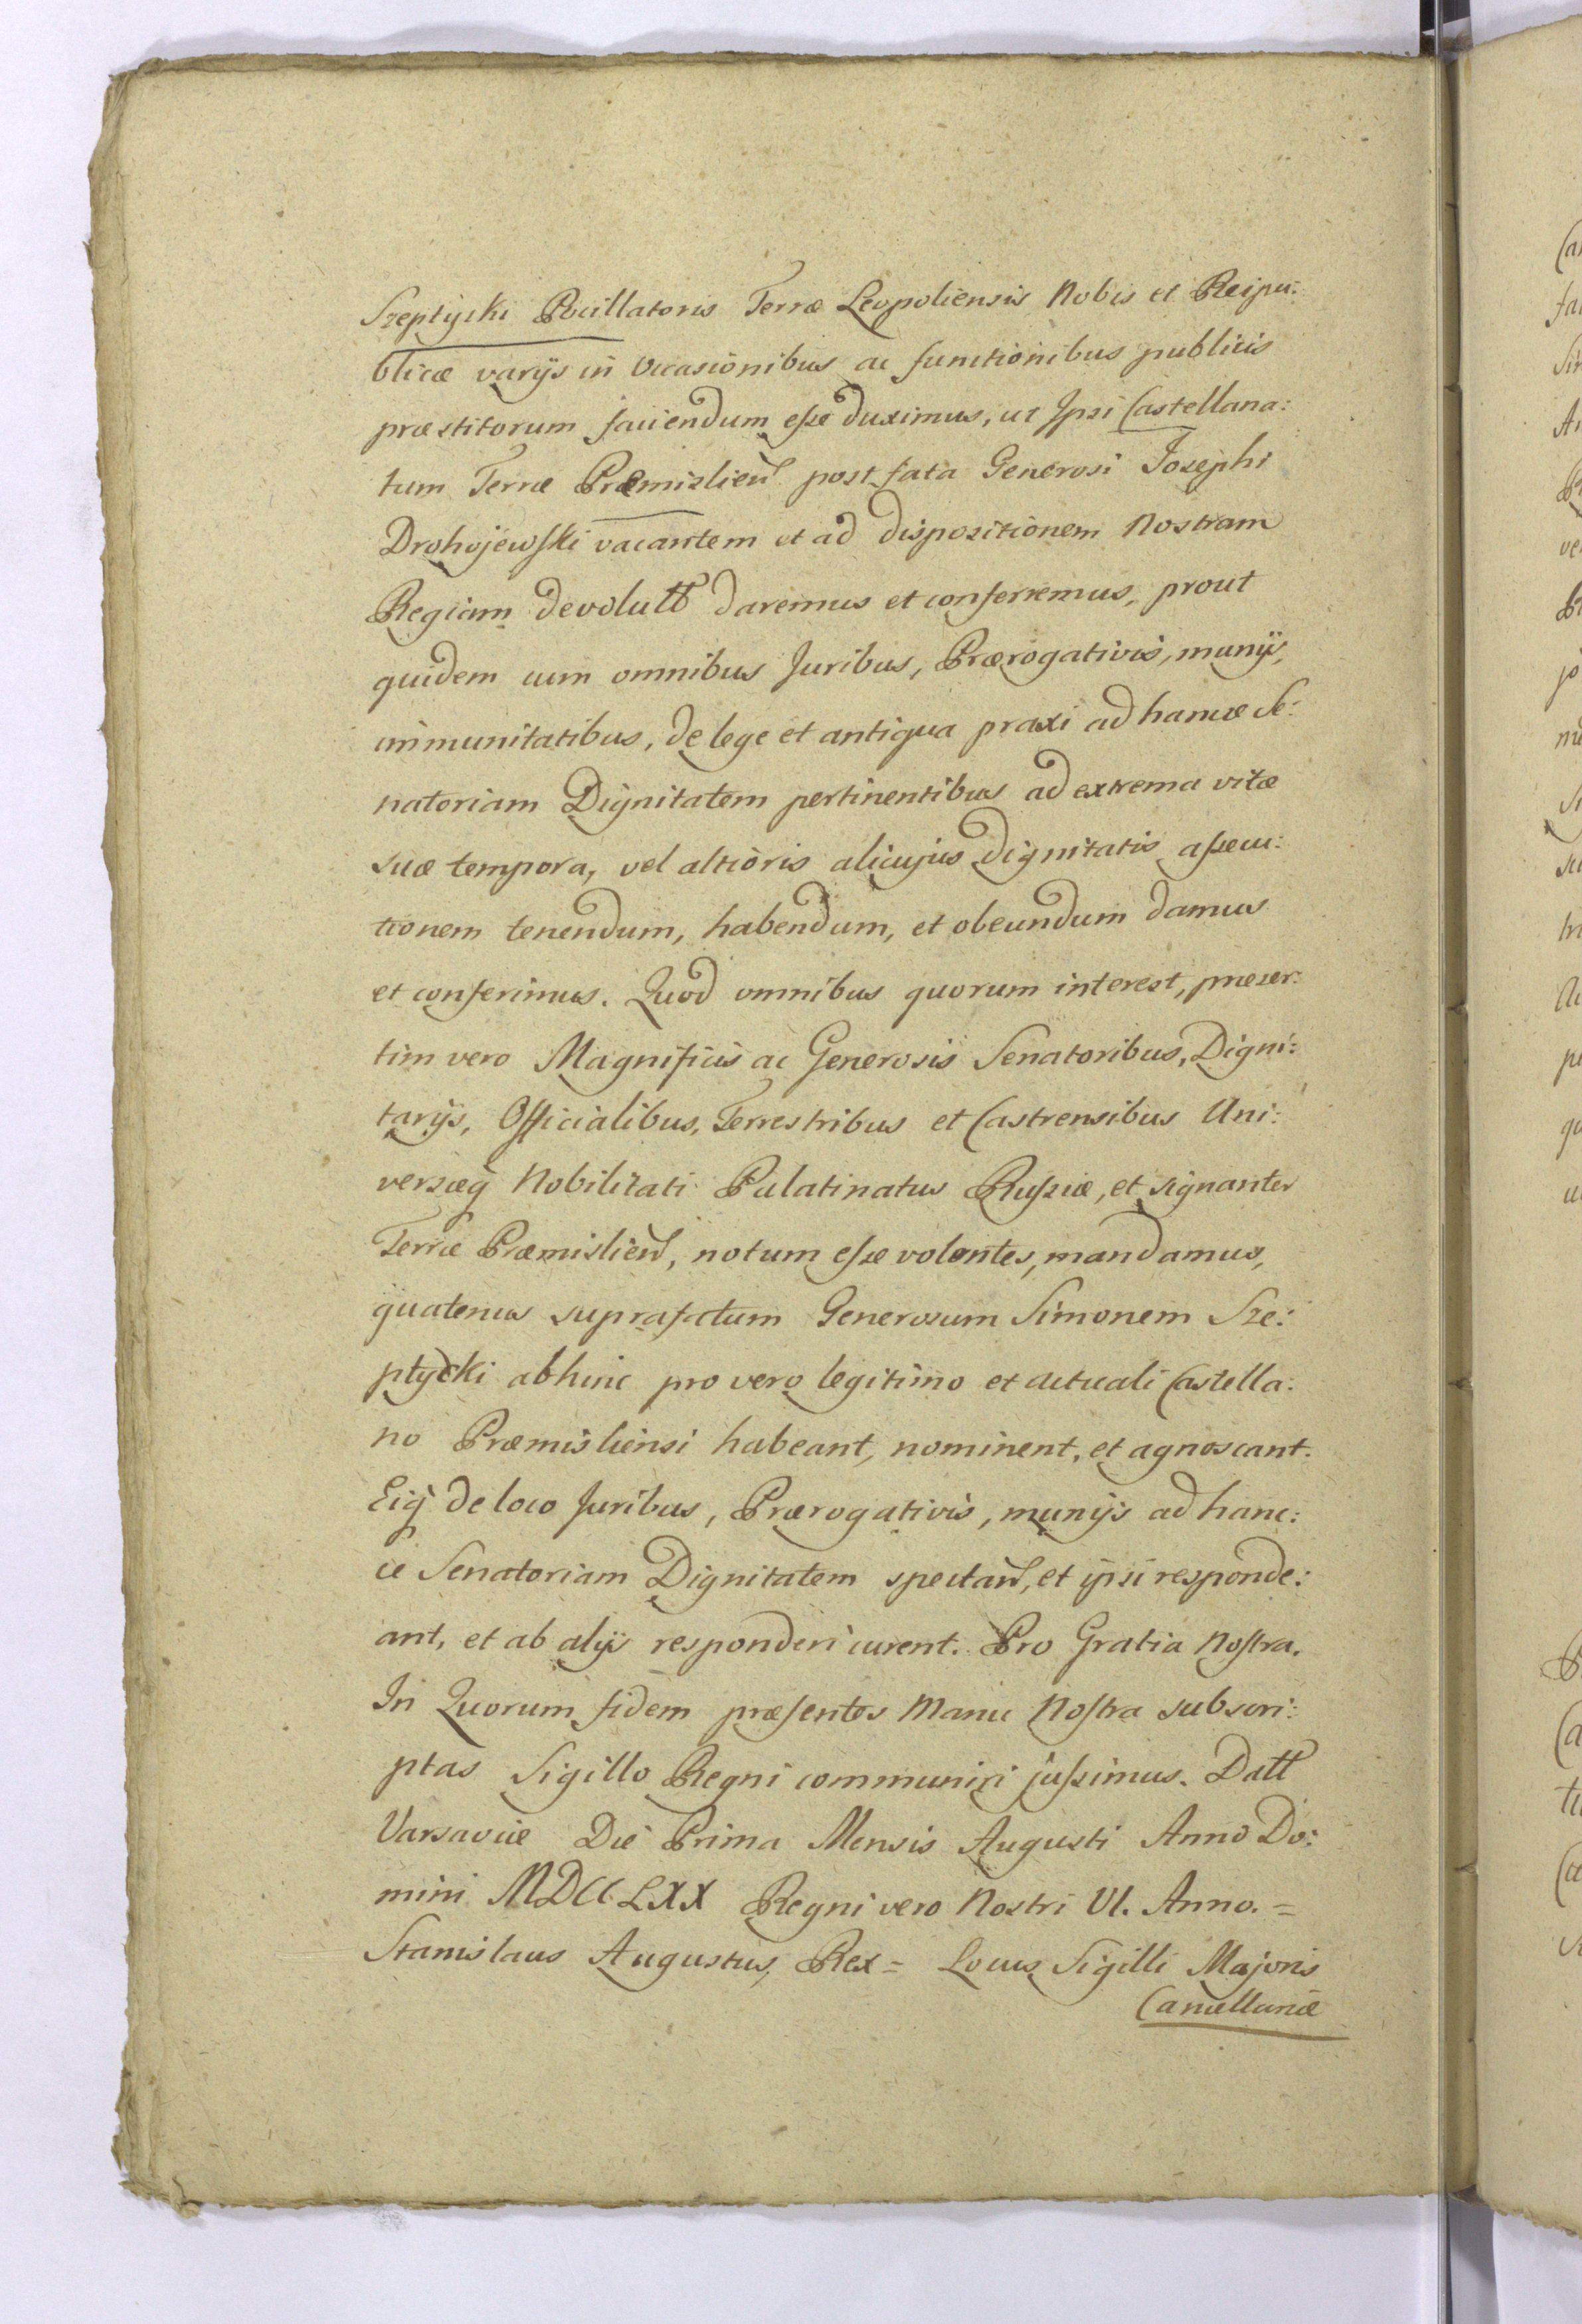 Szeptycki Pocillatoris Terræ Leopoliensis Nobis et Reipu:
blicæ varijs in occasionibus ac functionibus publicis
præstitorum faciendum eſse duximus, ut Ipsi Castellana:
tum Terræ Præmislien̄ post fata Generosi Josephi
Drohojewſki vacantem et ad dispositionem Nostram
Regiam devolutt daremus et conferremus, prout
quidem cum omnibus Juribus, Prærogativis, munijs,
immunitatibus, de lege et antiqua praxi ad hancce Se:
natoriam Dignitatem pertinentibus ad extrema vitæ
suæ tempora, vel altioris alicujus dignitatis aſsecu:
tionem tenendum, habendum, et obeundum damus
et conferimus. Quod omnibus quorum interest, præser:
tim vero Magnificis ac Generosis Senatoribus, Digni:
tarijs, Officialibus, Terrestribus et Castrensibus Uni:
versæq̀ Nobilitati Palatinatus Ruſsiæ, et signanter
Terræ Præmislien̄, notum eſse volentes, mandamus,
quatenus suprafatum Generosum Simonem Sze:
ptycki abhinc pro vero legitimo et actuali Castella:
no Præmisliensi habeant, nominent, et agnoscant.
Eiq̀ de loco Juribus, Prærogativis, munijs ad hanc:
ce Senatoriam Dignitatem spectan̄, et ipsi responde:
ant, et ab alijs responderi curent. Pro Gratia Noſtra.
In Quorum fidem præſentes Manu Noſtra subscri:
ptas Sigillo Regni communiri juſsimus. Datt
Varsaviæ Die Prima Mensis Augusti Anno Do:
mini MDCCLXX Regni vero Nostri VI. Anno. =
Stanislaus Augustus, Rex = Locus Sigilli Majoris
Cancellariæ